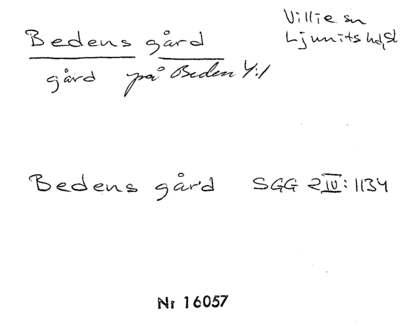 Bedens gård
Villie sn
Ljunits hd, Sk
gård på Beden 4:1
Bedens gård SGG 2 IV: 1134
Nr 16057